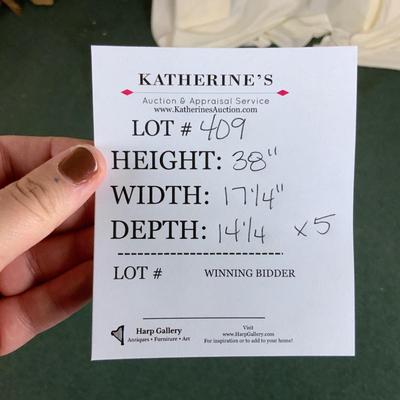 KATHERINE'S
Auction & Appraisal Service
www.KatherinesAuction.com
LOT # 409
HEIGHT: 38"
WIDTH: 17 1/4"
DEPTH: 14 1/4 x5
LOT # WINNING BIDDER
Harp Gallery
Antiques • Furniture • Art
Visit
www.HarpGallery.com
For inspiration or to add to your home!